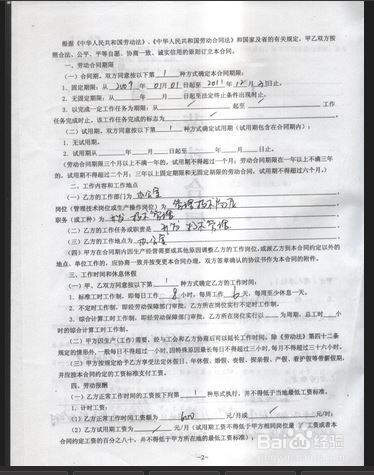 根据《中华人民共和国劳动法》、《中华人民共和国劳动合同法》和国家及省的有关规定，甲乙双方按
照合法、公平、平等自愿、协商一致、诚实信用的原则订立本合同。
一、劳动合同期限
（一）合同期。双方同意按以下第 1 种方式确定本合同期限：
1. 固定期限：从 2009 年 01 月 01 日起至 2011 年 12 月 日止。
2. 无固定期限：从 年 月 日起至法定终止条件出现时止。
3. 以完成一定工作任务为期限：从 起至 工作
任务完成时止。该工作任务完成的标志为
（二）试用期。双方同意按以下第 1 种方式确定试用期（试用期包含在合同期内）：
1. 无试用期。
2. 试用期从 年 月 日起至 年 月 日止。
（劳动合同期限三个月以上不满一年的，试用期不得超过一个月；劳动合同期限在一年以上不满三
年的，试用期不得超过二个月；三年以上固定期限和无固定期限的劳动合同，试用期不得超过六个月。）
二、工作内容和工作地点
（一）乙方的工作部门为 办公室
岗位（管理技术岗位或生产操作岗位）为 管理技术岗位
职务（或工种）为 管理
（二）乙方的工作任务或职责是 管理
（三）乙方的工作地点为 办公室
（四）甲方在合同期内因生产经营需要或其他原因调整乙方的工作岗位，或派乙方到本合同约定以外的
地点、单位工作的，应协商一致并按变更本合同办理，双方签章确认的协议书作为本合同的附件。
三、工作时间和休息休假
（一）甲、乙双方同意按以下第 1 种方式确定乙方的工作时间：
1. 标准工时工作制，即每日工作 8 小时，每周工作 天，每周至少休息一天。
2. 不定时工作制，即经劳动保障部门审批，乙方所在岗位实行不定时工作制。
3. 综合计算工时工作制，即经劳动保障部门审批，乙方所在岗位实行以 为周期，总工时 小
时的综合计算工时工作制。
（二）甲方因生产（工作）需要，经与工会和乙方协商后可以延长工作时间。除《劳动法》第四十二条
规定的情形外，一般每日不得超过一小时，因特殊原因最长每日不得超过三小时，每月不得超过三十六小时。
（三）甲方按规定给予乙方享受法定休假日、年休假、婚假、丧假、探亲假、产假、看护假等带薪假期，
并应按本合同约定的工资标准支付工资。
四、劳动报酬
（一）乙方正常工作时间的工资按下列第 1 种形式执行，并不得低于当地最低工资标准。
1. 计时工资：
（1）乙方正常工作时间工资额为 600 元/月或 元/时；
（2）乙方试用期工资为 元/月（试用期工资不得低于甲方相同岗位最低档工资或者本
合同约定工资的百分之八十，并不得低于甲方所在地的最低工资标准）；
-2-
Baidu经验